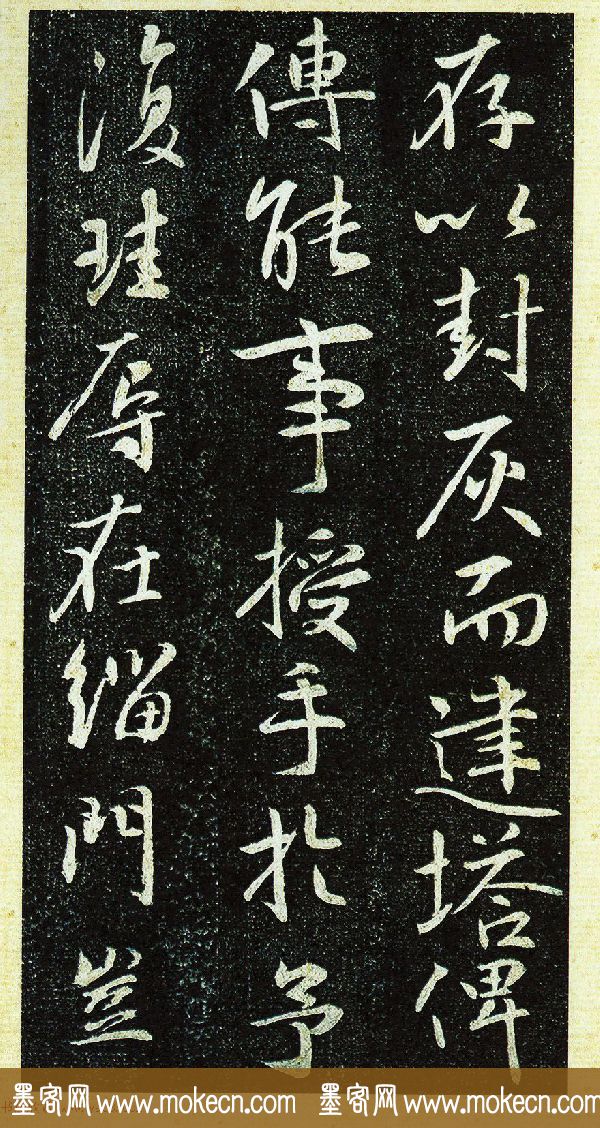 存以封灰而建塔俾
傳能事授手於予
復珪辱在緇門豈
墨客网 www.mokecn.com 墨客网 www.mokecn.com